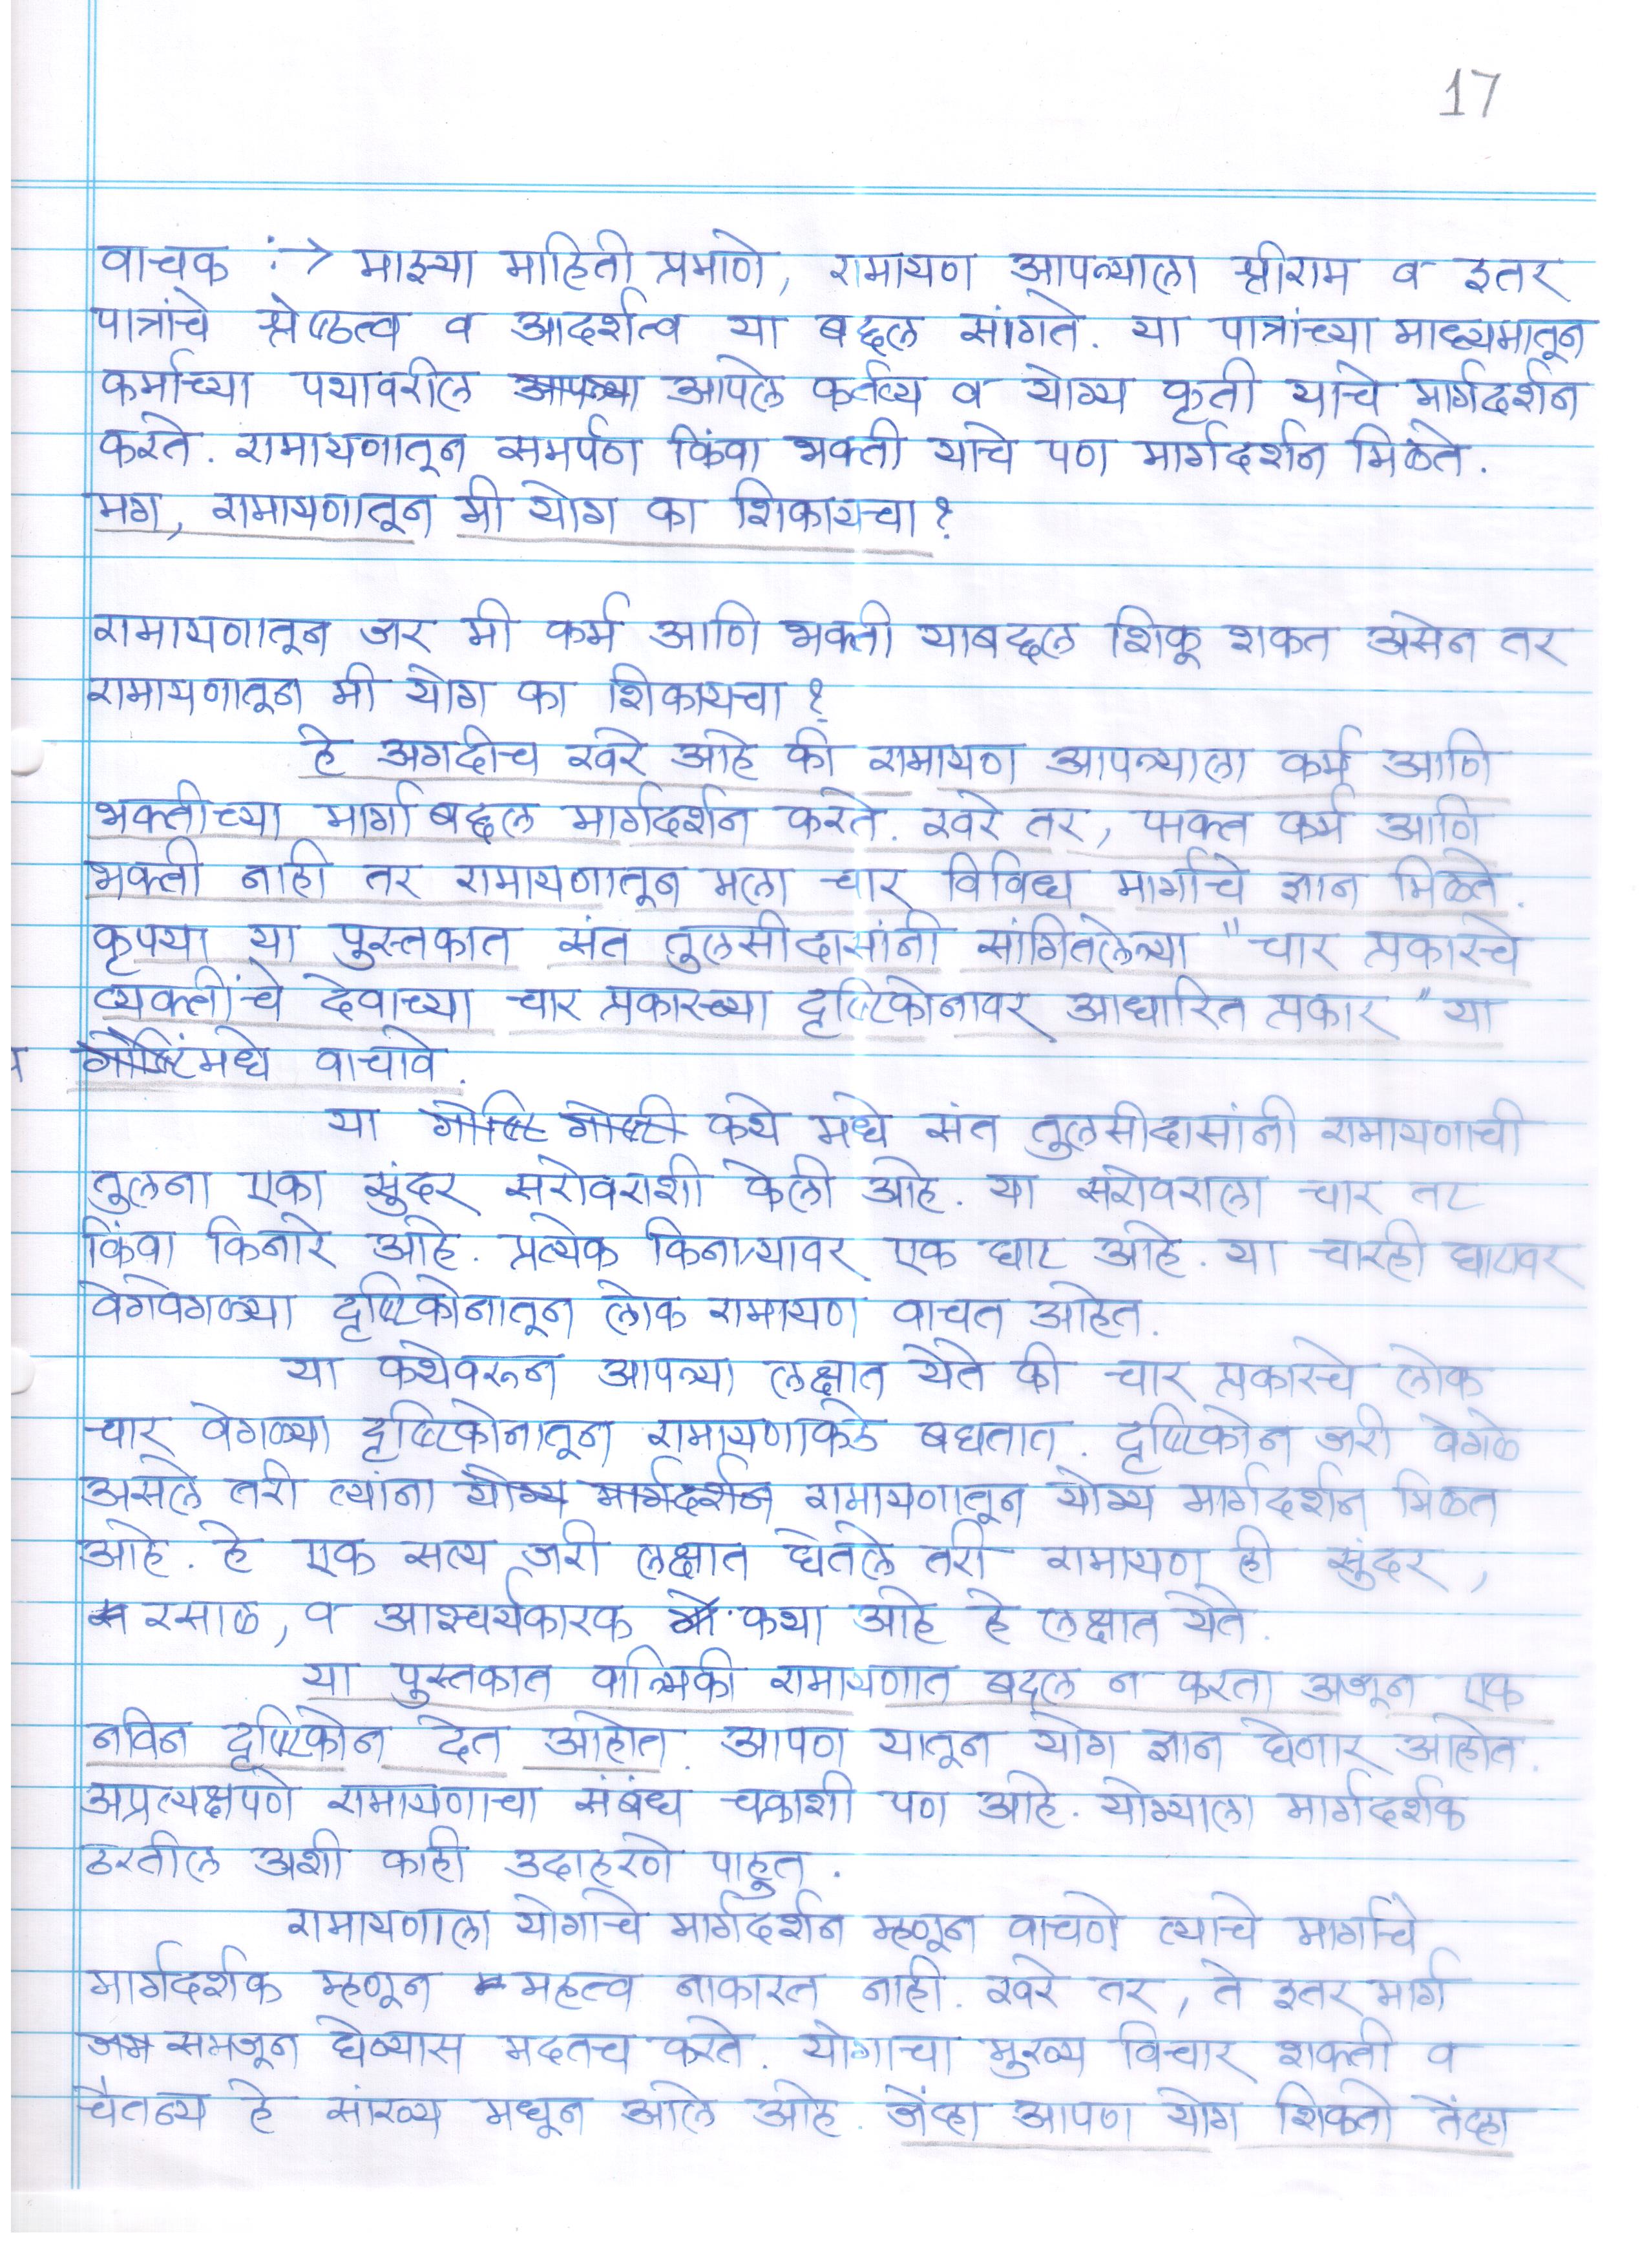 17
वाचक :→ माझ्या माहिती प्रमाणे, रामायण आपल्याला श्रीराम व इतर
पात्रांचे श्रेष्ठत्व व आदर्शत्व या बद्दल सांगते. या पात्रांच्या माध्यमातून
कर्माच्या पथावरील आपल्या आपले कर्तव्य व योग्य कृती याचे मार्गदर्शन
करते. रामायणातून समर्पण किंवा भक्ती याचे पण मार्गदर्शन मिळते.
मग, रामायणातून मी योग का शिकायचा?
रामायणातून जर मी कर्म आणि भक्ती याबद्दल शिकू शकत असेन तर
रामायणातून मी योग का शिकायचा?
हे अगदीच खरे आहे की रामायण आपल्याला कर्म आणि
भक्तीच्या मार्गाबद्दल मार्गदर्शन करते. खरे तर, फक्त कर्म आणि
भक्ती नाही तर रामायणातून मला चार विविध मार्गाचे ज्ञान मिळते.
कृपया या पुस्तकात संत तुलसीदासांनी सांगितलेल्या "चार प्रकारचे
व्यक्तींचे देवाच्या चार प्रकारच्या दृष्टिकोनावर आधारित प्रकार" या
गोष्टिंमधे वाचावे.
या गोष्टि गोष्टी कथे मधे संत तुलसीदासांनी रामायणाची
तुलना एका सुंदर सरोवराशी केली आहे. या सरोवराला चार तट
किंवा किनारे आहे. प्रत्येक किनाऱ्यावर एक घाट आहे. या चारही घाटावर
वेगवेगळ्या दृष्टिकोनातून लोक रामायण वाचत आहेत.
या कथेवरून आपल्या लक्षात येते की चार प्रकारचे लोक
चार वेगळ्या दृष्टिकोनातून रामायणाकडे बघतात. दृष्टिकोन जरी वेगळे
असले तरी त्यांना योग्य मार्गदर्शन रामायणातून योग्य मार्गदर्शन मिळत
आहे. हे एक सत्य जरी लक्षात घेतले तरी रामायण ही सुंदर,
रसाळ, व आश्चर्यकारक गो कथा आहे हे लक्षात येते.
या पुस्तकात वाल्मिकी रामायणात बदल न करता अजून एक
नविन दृष्टिकोन देत आहोत. आपण यातून योग ज्ञान घेणार आहोत.
अप्रत्यक्षपणे रामायणाचा संबंध चक्राशी पण आहे. योग्याला मार्गदर्शक
ठरतील अशी काही उदाहरणे पाहूत.
रामायणाला योगाचे मार्गदर्शन म्हणून वाचणे त्याचे मार्गाचे
मार्गदर्शक म्हणून महत्व नाकारत नाही. खरे तर, ते इतर मार्ग
समजून घेण्यास मदतच करते. योगाचा मुख्य विचार शक्ती व
चैतन्य हे सांख्य मधून आले आहे. जेंव्हा आपण योग शिकतो तेंव्हा